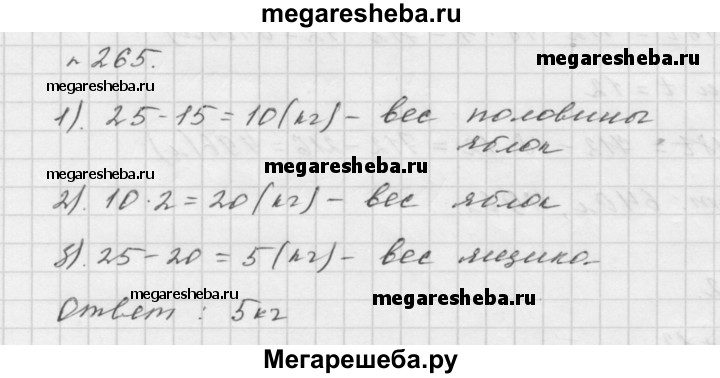 megaresheba.ru
№ 265.
megaresheba.ru
megaresheba.ru
1). 25-15=10(кг)- вес половины
яблок
megaresheba.ru
megaresheba.ru
2). 10·2=20(кг)- вес яблок
3). 25-20=5(кг)- вес ящика.
megaresheba.ru
megaresheba.ru
Ответ: 5кг
Мегарешеба.ру